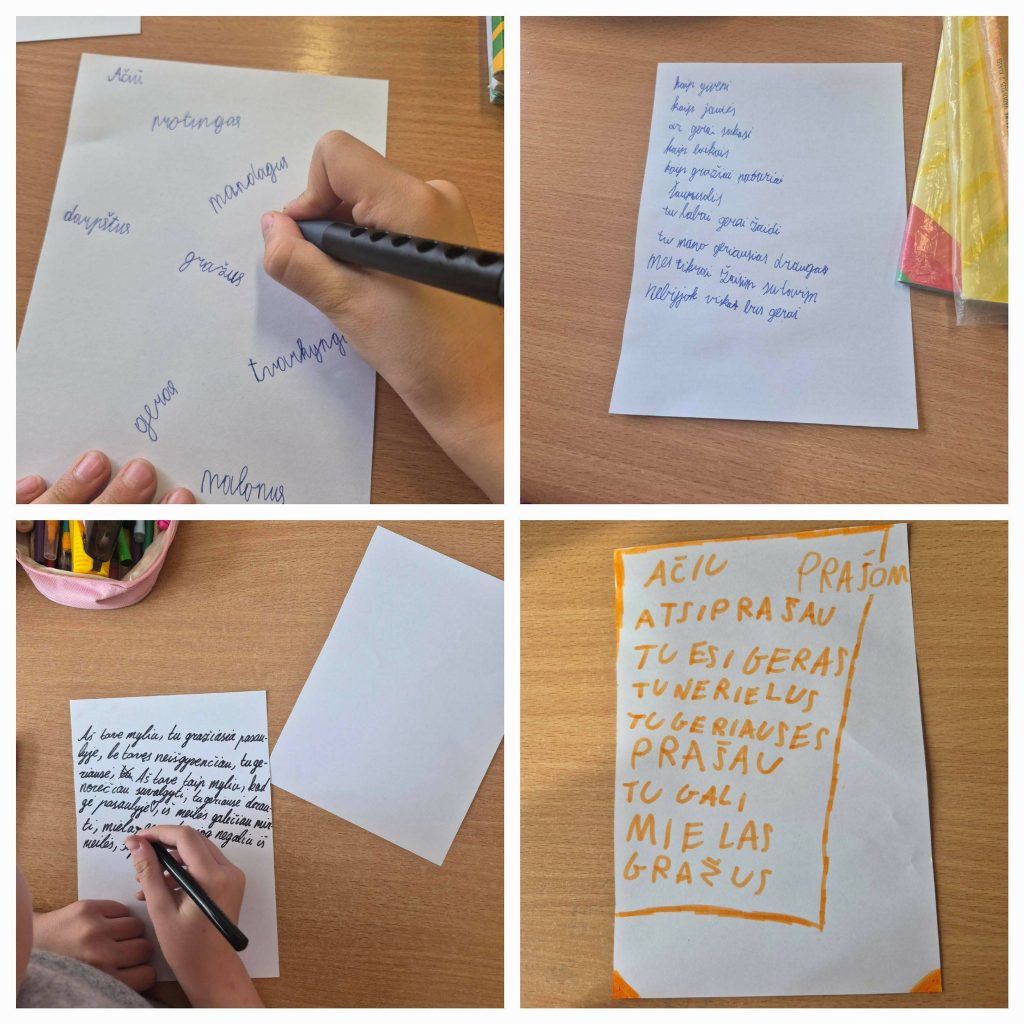 Ačiū
protingas
mandagus
darpštus
gražus
tvarkyng
geras
malonus
kaip gyveni
kaip jautės
ar gerai sekasi
kaip laikais
kaip gražiai
tu labai gerai žaidi
tu mano geriausias draugas
mes tikrai žusim sutovim
Nebijok viskas bus gerai
Aš tave myliu, tu gražiausia pasau-
lyje, be tavęs neišgyvenčiau, tu ge-
riausė, Aš tave taip myliu, kad
norėčiau suvalgyti, tu geriausė drau-
gė pasaulyje, iš meilės galėčiau mir-
ti, negaliu iš
meilės,
AČIU PRAŠOM
ATSIPRAŠAU
TU ESI GERAS
TU NERIELUS
TU GERIAUSES
PRAŠAU
TU GALI
MIELAS
GRAŽUS